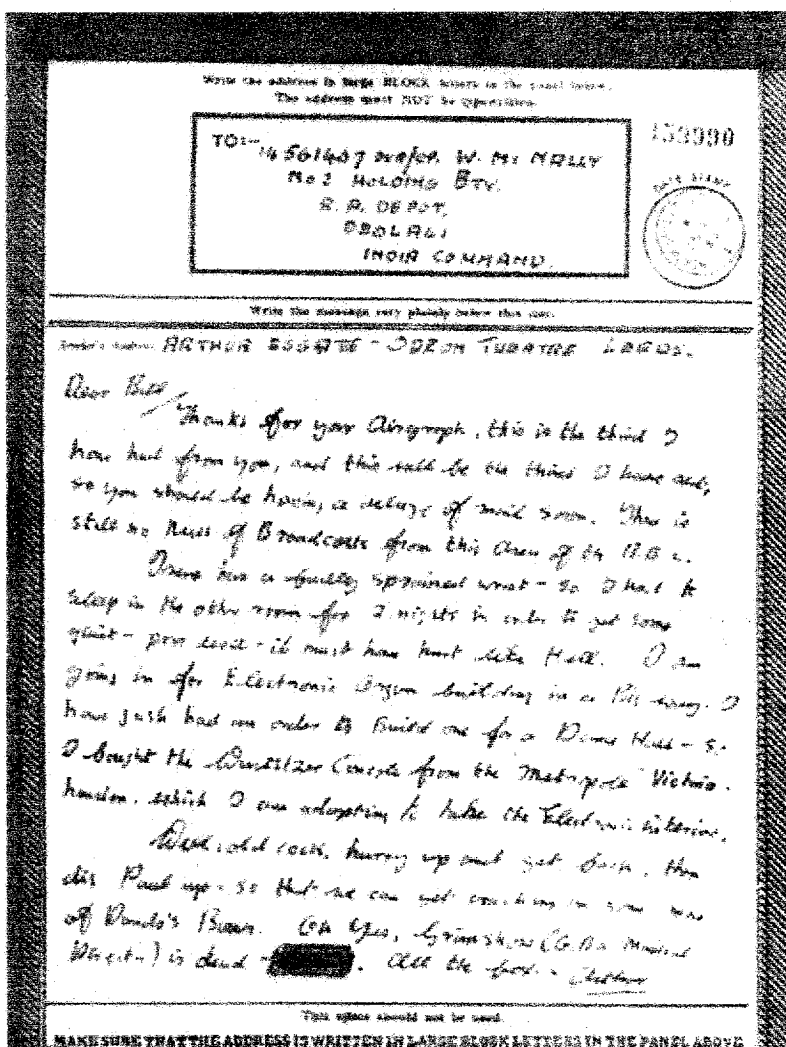 Write the address in large BLOCK letters in the panel below.
The address must NOT be typewritten.
TO:- 14561407 W. Mc NALLY
No 2 HOLDING BTY.
R.A. DEPOT,
DEOLALI
INDIA COMMAND.
133990
DATE STAMP
Write the message very plainly below this line.
Sender's Address ARTHUR - ODEON THEATRE LEEDS.
Dear Bill
Thanks for your Airgraph, this is the third I
have had from you, and this will be the third I have sent,
so you should be having a deluge of mail soon. There is
still no News of Broadcasts from this Area of the B.B.C.
has a badly sprained wrist - so I had to
sleep in the other room for 2 nights in order to get some
quiet - poor - it must have hurt like Hell. I am
going in for Electronic Organ building in a Big way. I
have just had an order to Build one for a Dance Hall - so
I bought the Wurlitzer Console from the Metropole Victoria.
London. which I am adapting to take the Electronic interior.
Well, old cock, hurry up and get back, then
dig Paul up - so that we can get cracking on some more
of Brew. Oh Yes, Grimshaw (G.B's Musical
Director) is dead. All the best - Arthur
This space should not be used.
MAKE SURE THAT THE ADDRESS IS WRITTEN IN LARGE BLOCK LETTERS IN THE PANEL ABOVE